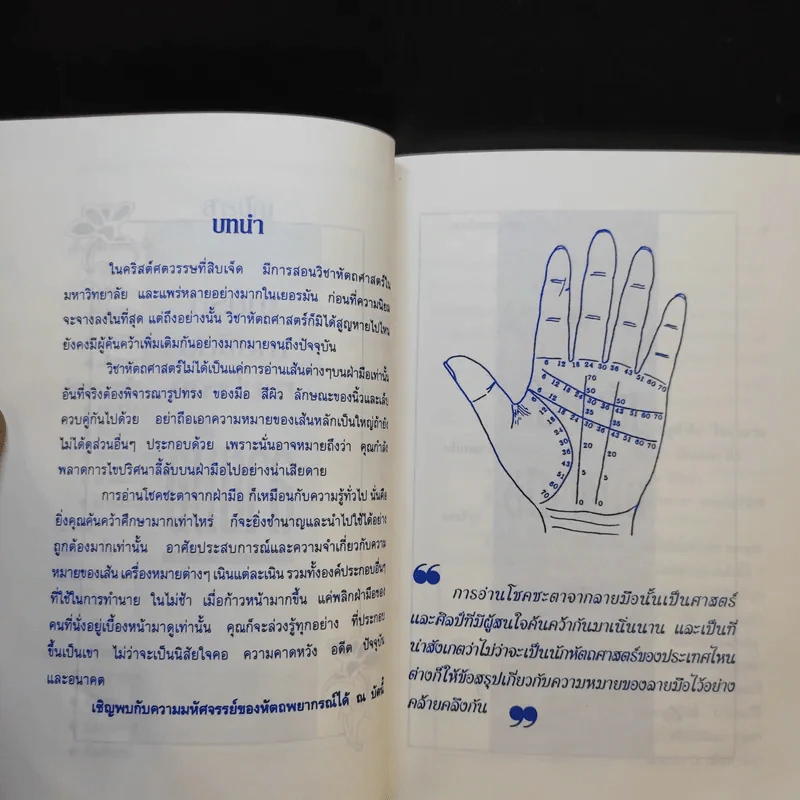 บทนำ
ในคริสต์ศตวรรษที่สิบเจ็ด มีการสอนวิชาหัตถศาสตร์ใน
มหาวิทยาลัย และแพร่หลายอย่างมากในเยอรมัน ก่อนที่ความนิยม
จะจางลงในที่สุด แต่ถึงอย่างนั้น วิชาหัตถศาสตร์ก็มิได้สูญหายไปไหน
ยังคงมีผู้ค้นคว้าเพิ่มเติมกันอย่างมากมายจนถึงปัจจุบัน
วิชาหัตถศาสตร์ไม่ได้เป็นแค่การอ่านเส้นต่างๆบนฝ่ามือเท่านั้น
อันที่จริงต้องพิจารณารูปทรง ของมือ สีผิว ลักษณะของนิ้วและเล็บ
ควบคู่กันไปด้วย อย่าถือเอาความหมายของเส้นหลักเป็นใหญ่ถ้ายัง
ไม่ได้ดูส่วนอื่นๆ ประกอบด้วย เพราะนั่นอาจหมายถึงว่า คุณกำลัง
พลาดการไขปริศนาลี้ลับบนฝ่ามือไปอย่างน่าเสียดาย
การอ่านโชคชะตาจากฝ่ามือ ก็เหมือนกับความรู้ทั่วไป นั่นคือ
ยิ่งคุณค้นคว้าศึกษามากเท่าไหร่ ก็จะยิ่งชำนาญและนำไปใช้ได้อย่าง
ถูกต้องมากเท่านั้น อาศัยประสบการณ์และความจำเกี่ยวกับความ
หมายของเส้น เครื่องหมายต่างๆ เนินแต่ละเนิน รวมทั้งองค์ประกอบอื่นๆ
ที่ใช้ในการทำนาย ในไม่ช้า เมื่อก้าวหน้ามากขึ้น แค่พลิกฝ่ามือของ
คนที่นั่งอยู่เบื้องหน้ามาดูเท่านั้น คุณก็จะล่วงรู้ทุกอย่าง ที่ประกอบ
ขึ้นเป็นเขา ไม่ว่าจะเป็นนิสัยใจคอ ความคาดหวัง อดีต ปัจจุบัน
และอนาคต
เชิญพบกับความมหัศจรรย์ของหัตถพยากรณ์ได้ ณ บัดนี้
6 12 18 24 30 36 43 51 60 70
70
6 12 18 24 30 36 43 51 60 70
50 50
35 35
20 20
5 5
0 0
6 12 18 24 30 36 43 51 60 70
“
การอ่านโชคชะตาจากลายมือนั้นเป็นศาสตร์
และศิลป์ที่มีผู้สนใจค้นคว้ากันมาเนิ่นนาน และเป็นที่
น่าสังเกตว่าไม่ว่าจะเป็นนักหัตถศาสตร์ของประเทศไหน
ต่างก็ให้ข้อสรุปเกี่ยวกับความหมายของลายมือไว้อย่าง
คล้ายคลึงกัน ”